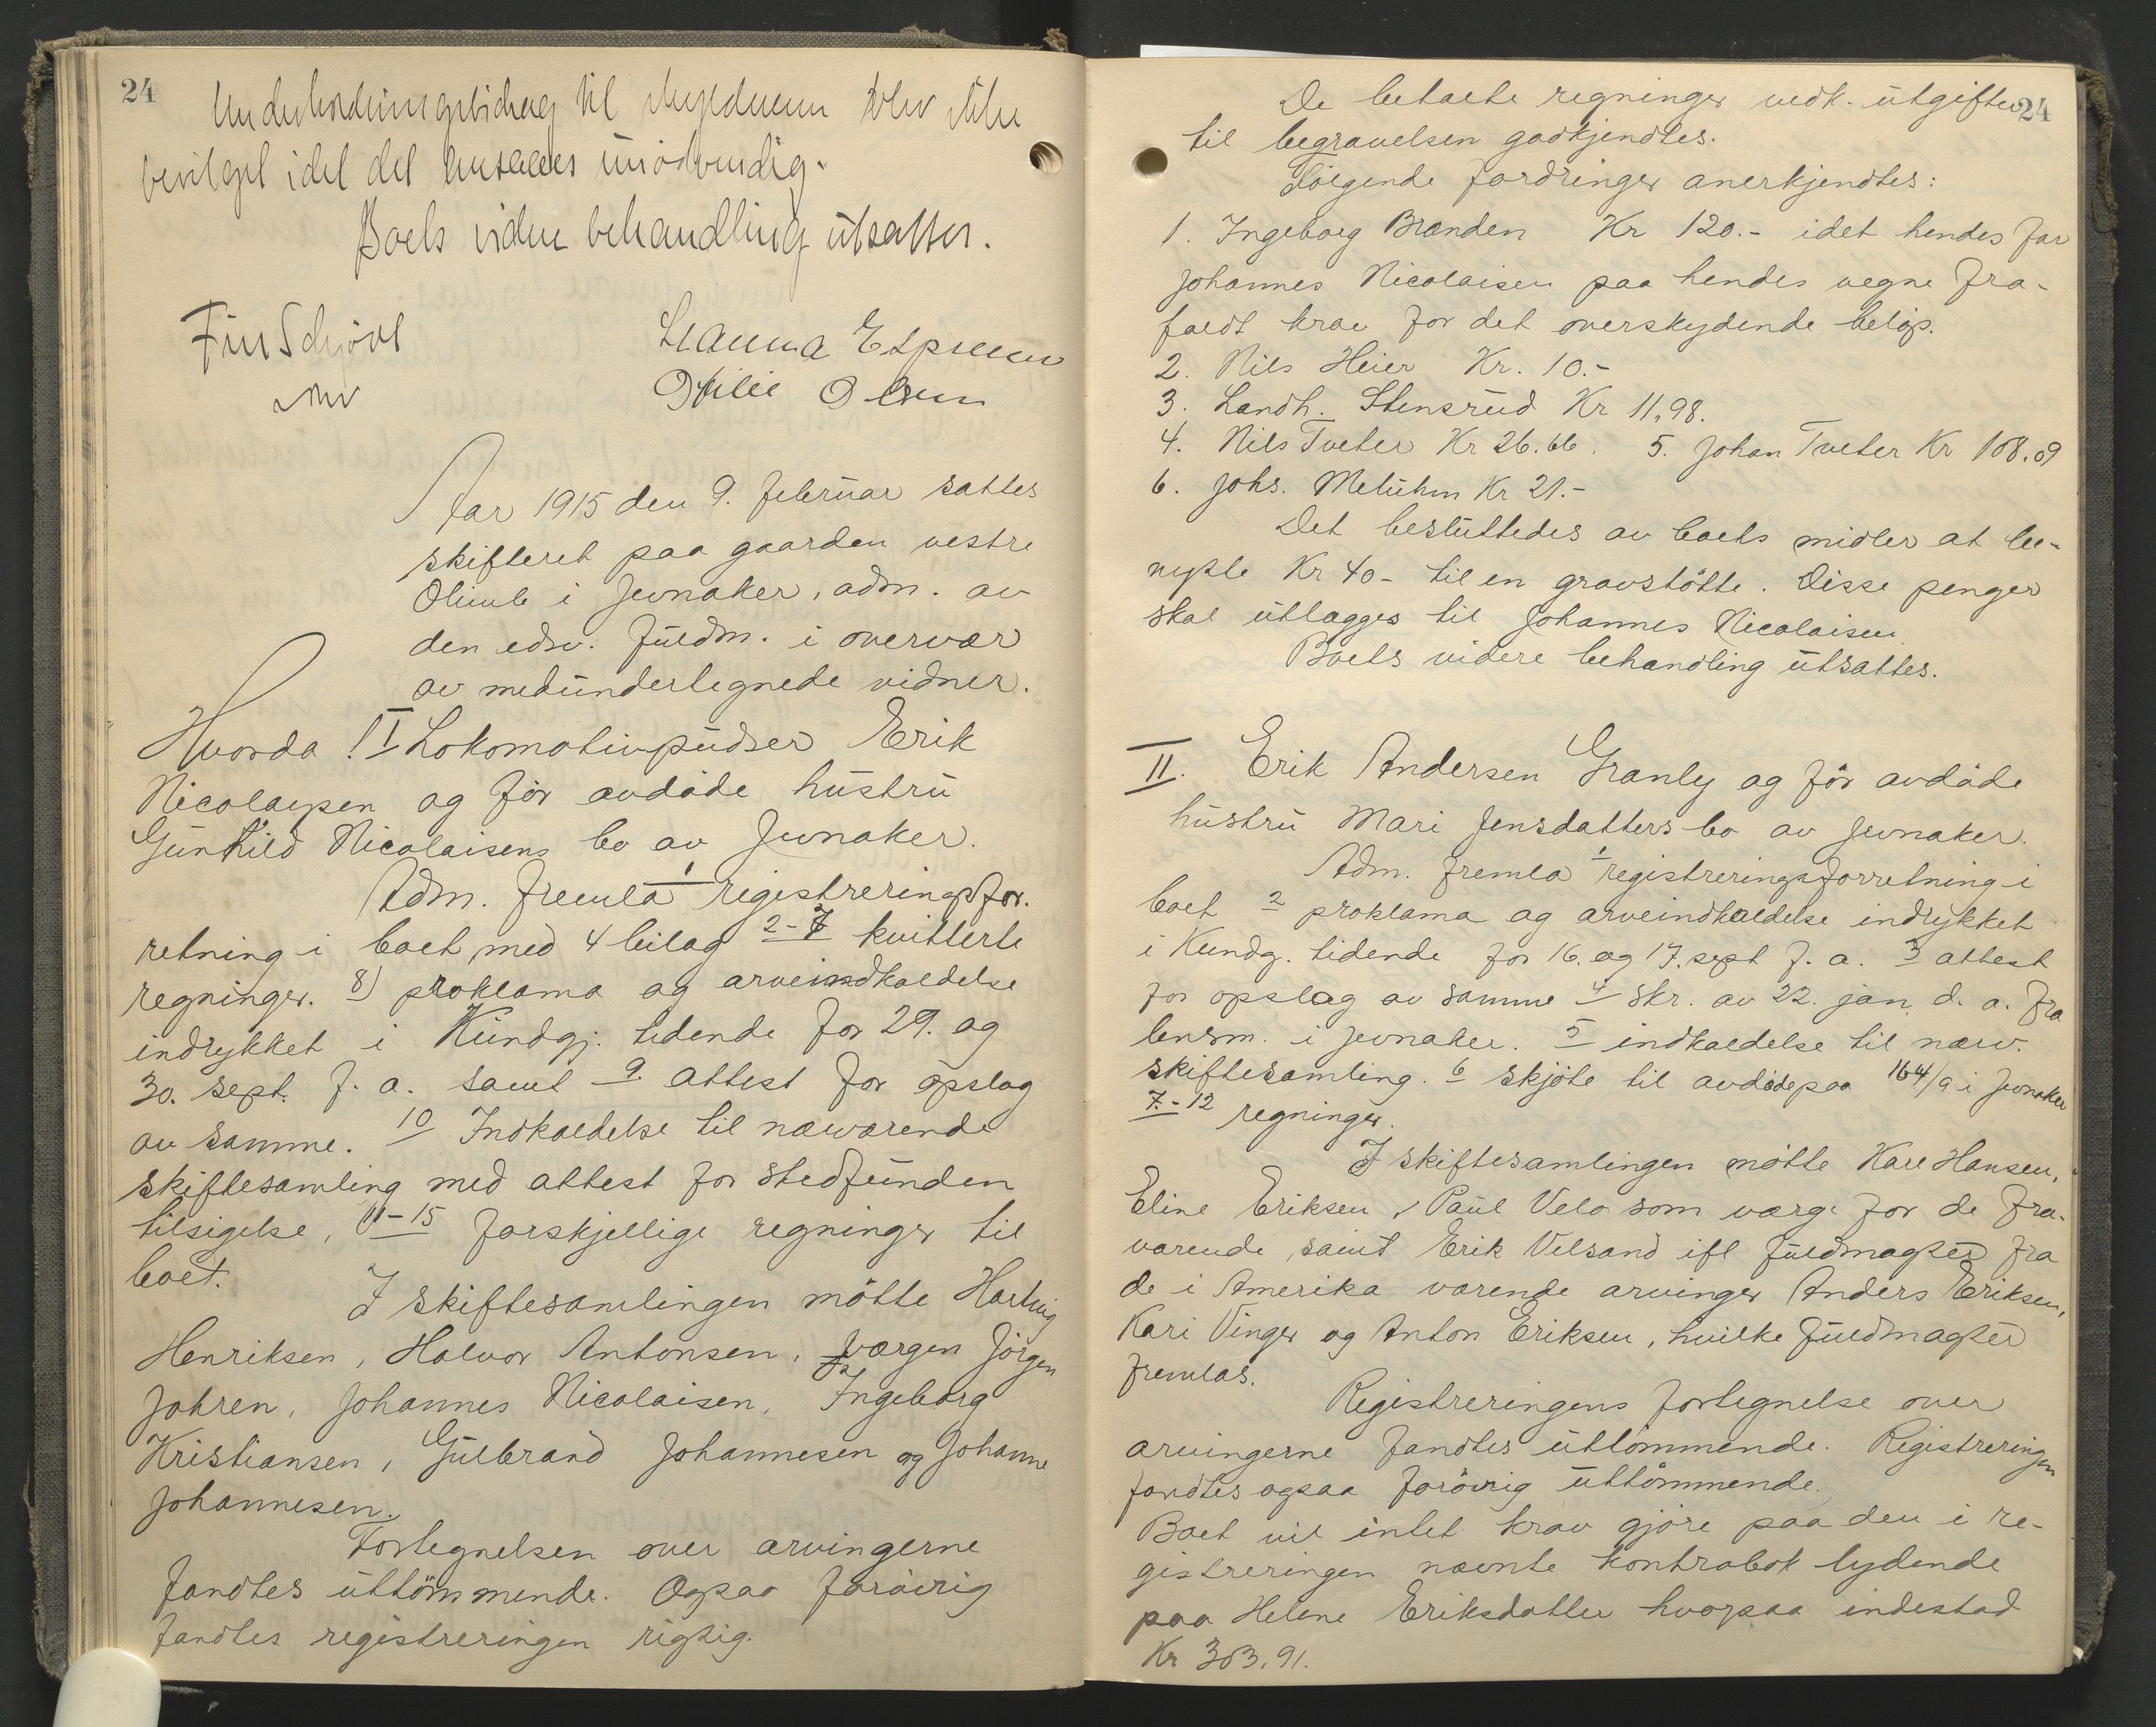 24
Underholdningsbidrag til blev ikke
bevilget idet det ansaaes unødvendig.
Boets videre behandling utsattes.
Hanna Espersen
Otilie Olsen
Aar 1915 den 9. februar sattes
skifteret paa gaarden vestre
Olimb i Jevnaker, adm. av
den edsv. fuldm. i overvær
av medundertegnede vidner.
Hvorda! I Lokomotivpudser Erik
Nicolaysen og før avdøde hustru
Gunhild Nicolaisens bo av Jevnaker.
Adm. fremla 1 registreringsfor-
retning i boet med 4 bilag 2-7 kvitterte
regninger. 8) proklama og arveindkaldelse
indrykket i Kundgj. tidende for 29. og
30. sept. f. a. samt 9. attest for opslag
av samme. 10 Indkaldelse til nærværende
skiftesamling med attest for stedfunden
tilsigelse, 11-15 forskjellige regninger til
boet.
I skiftesamlingen møtte Hartvig
Henriksen, Halvor Antonsen, værgen Jörgen
Johren, Johannes Nicolaisen, Ingeborg
Kristiansen, Gulbrand Johannesen og Johanne
Johannesen.
Fortegnelsen over arvingerne
fandtes uttömmende. Ogsaa forøvrig
fandtes registreringen rigtig.
24
De betalte regninger vedk. utgifter
til begravelsen godkjendtes.
Følgende fordringer anerkjendtes:
1. Ingeborg Brænden Kr 120.- idet hendes far
Johannes Nicolaisen paa hendes vegne fra-
faldt krav for det overskydende beløp.
2. Nils Heier Kr. 10.-
3. Landh. Stensrud Kr 11,98.
4. Nils Tveter Kr 26.66. 5. Johan Tveter Kr 108.09
6. Johs. Kr 21.-
Det besluttedes av boets midler at be-
nytte Kr 40- til en gravstötte. Disse penger
skal utlægges til Johannes Nicolaisen.
Boets videre behandling utsattes.
II. Erik Andersen Granly og før avdøde
hustru Mari Jensdatters bo av Jevnaker.
Adm. fremla 1 registreringsforretning i
boet 2 proklama og arveindkaldelse indrykket
i Kundg. tidende for 16. og 17. sept f. a. 3 attest
for opslag av samme 4 skr. av 22. jan. d. a. fra
lensm. i Jevnaker. 5 indkaldelse til nærv.
skiftesamling. 6 skjøte til avdøde paa 164/9 i Jevnaker
7.-12 regninger.
I skiftesamlingen møtte Kari Hansen,
Eline Eriksen, Paul Velo som værge for de fra-
værende samt Erik Velsand ifl fuldmagter fra
de i Amerika værende arvinger Anders Eriksen,
Kari Vinger og Anton Eriksen, hvilke fuldmagter
fremlas.
Registreringens fortegnelse over
arvingerne fandtes uttömmende. Registreringen
fandtes ogsaa forøvrig uttömmende.
Boet vil intet krav gjøre paa den i re-
gistreringen nævnte kontrabok lydende
paa Helene Eriksdatter hvorpaa indestod
Kr 303,91.